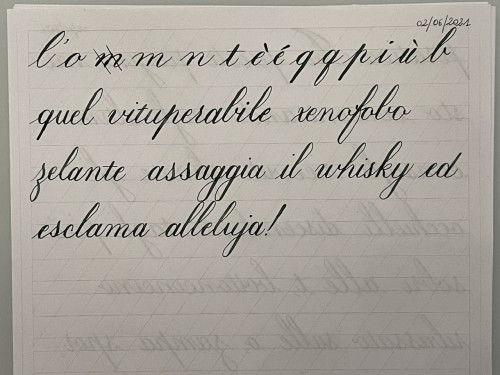 02/06/2021
l'o m m n t è é q q p i ù b
quel vituperabile xenofobo
zelante assaggia il whisky ed
esclama alleluja!